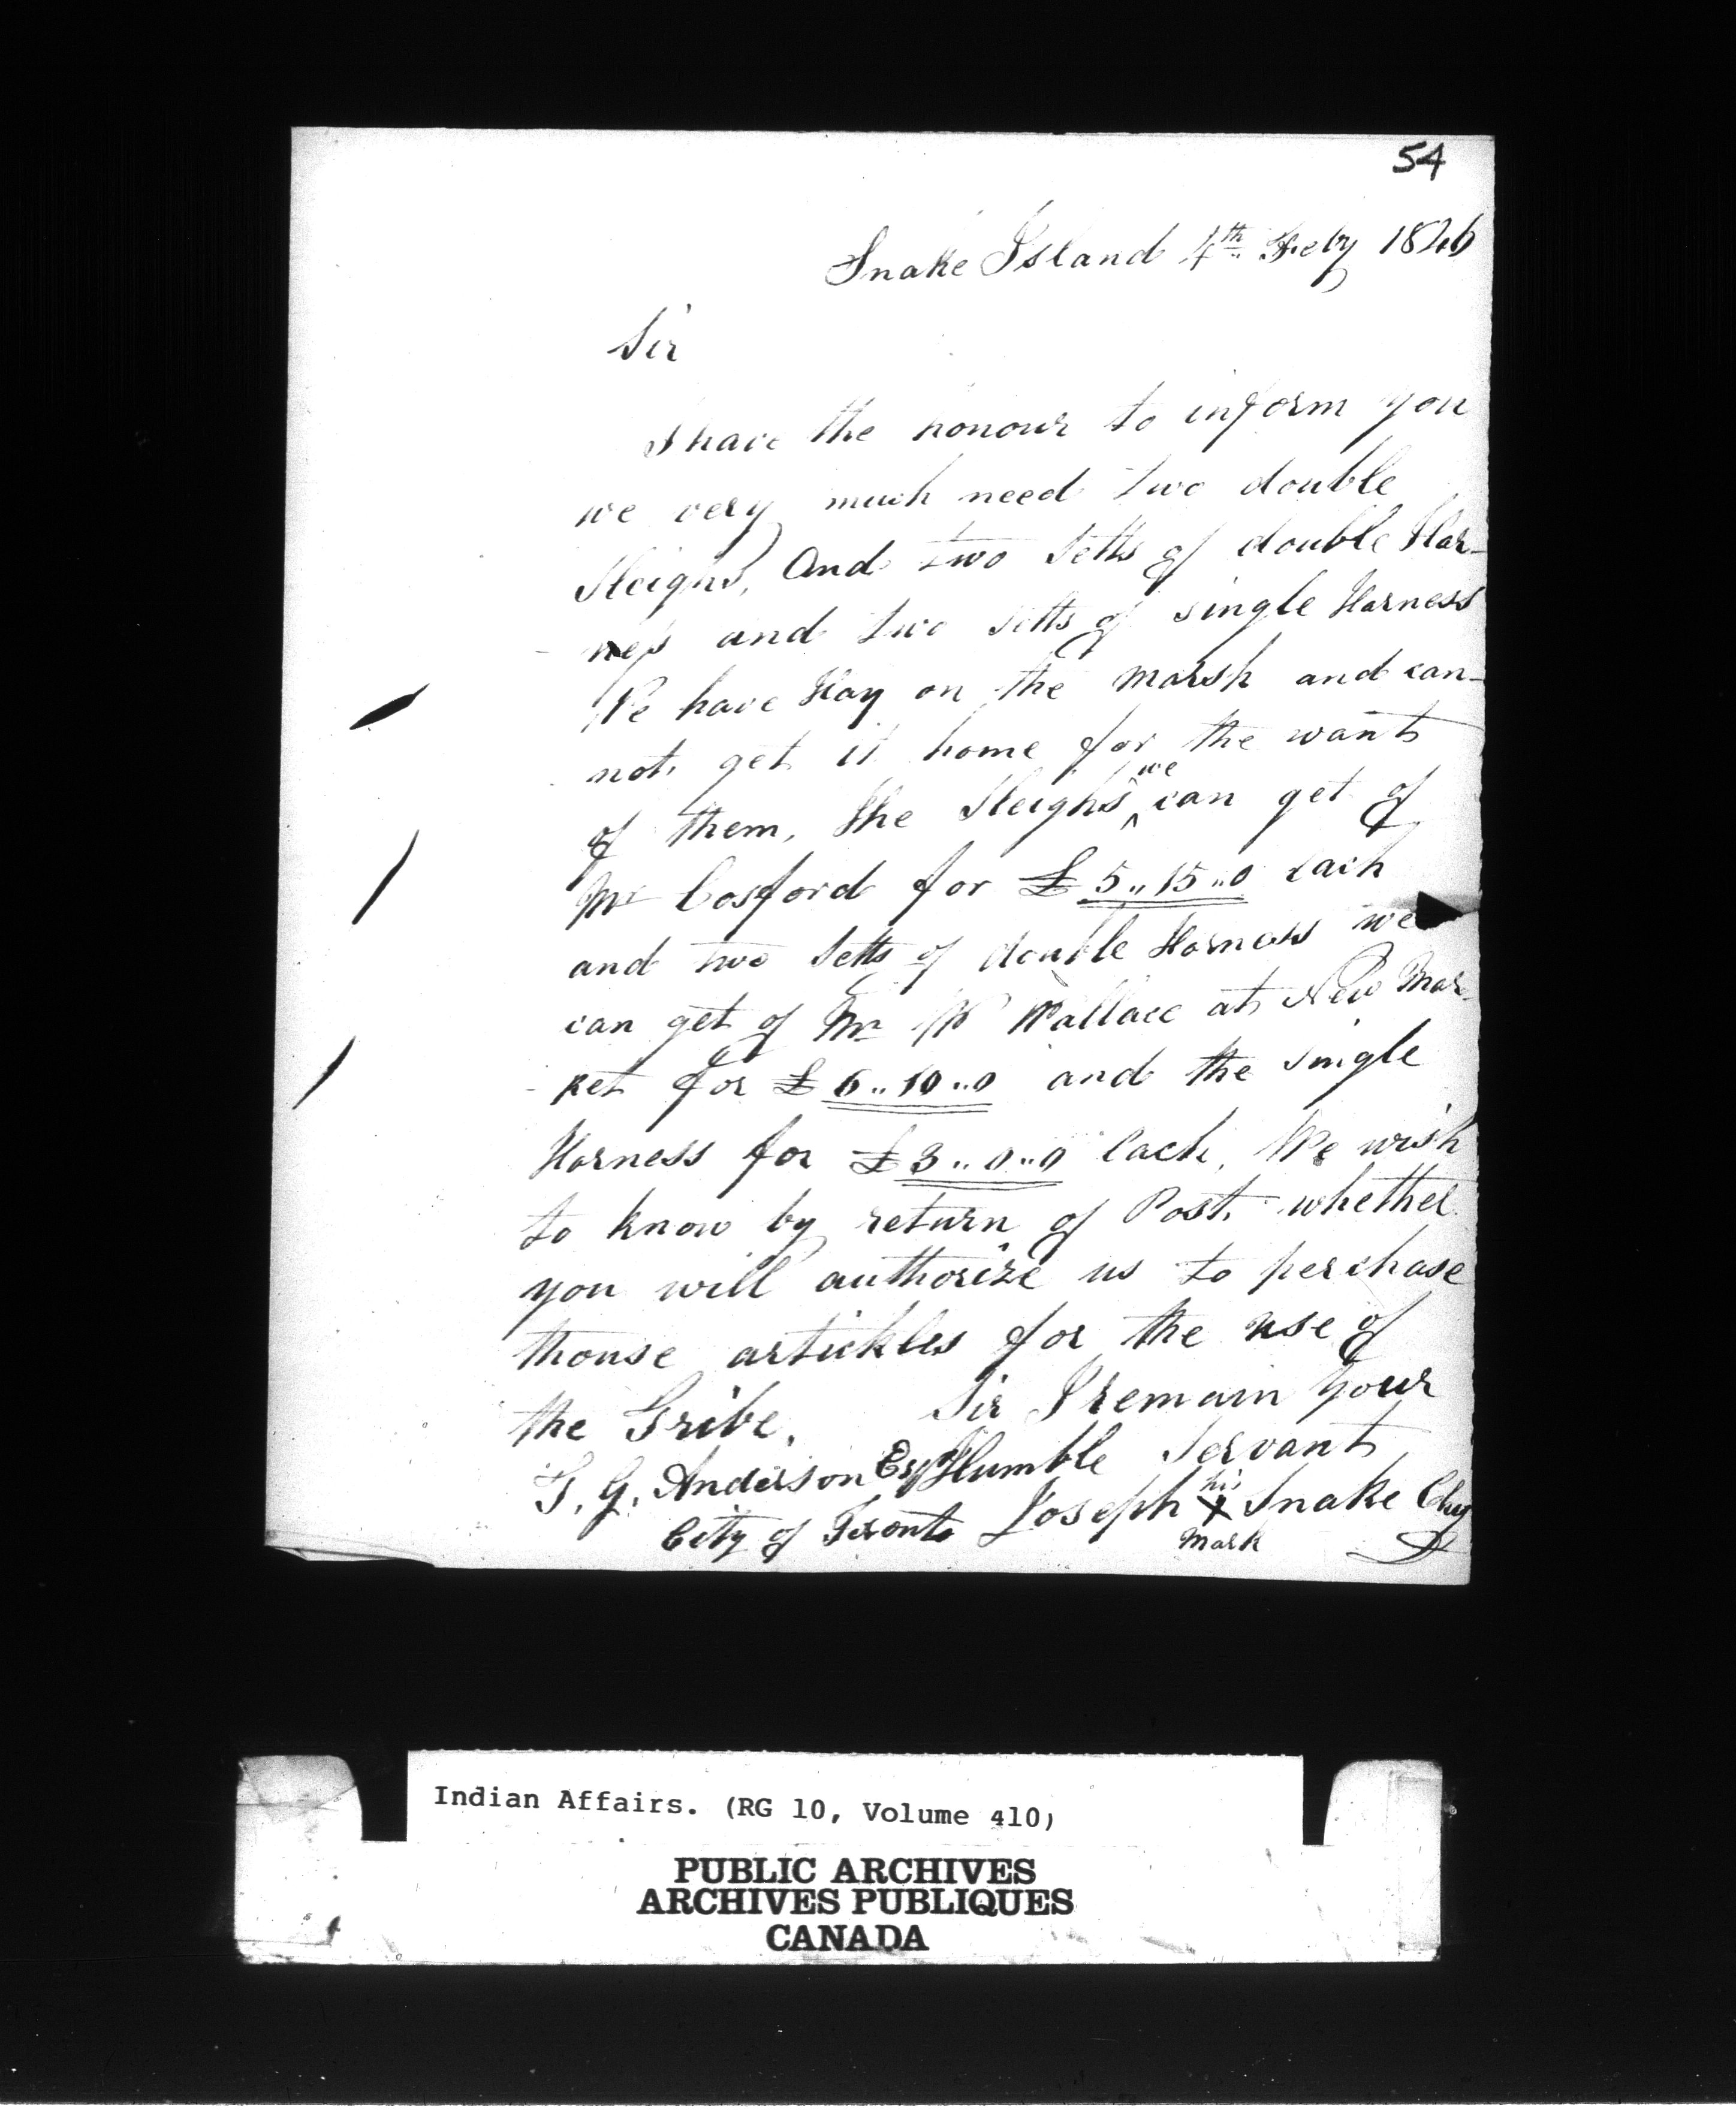 54
Snake Island 4th Feby 1846
Sir
I have the honour to inform you
we very much need two double
Sleighs, And two Setts of double Har-
ness and two Setts of single Harness
We have Hay on the marsh and can-
not get it home for the want
of them, The Sleighs we can get of
Mr Cosford for £5,,15,,0 each
and two Setts of double Harness we
can get of Mr W Wallace at New Mar-
ket for £6,,10,,0 and the Single
Harness for £3,,0,,0 Each, We wish
to know by return of Post, whether
you will authorize us to perchase
thouse artickles for the use of
the Tribe. Sir I remain your
T. G. Anderson Esqr Humble Servant
City of Toronto Joseph his X Snake Chief
mark
Indian Affairs. (RG 10, Volume 410)
PUBLIC ARCHIVES
ARCHIVES PUBLIQUES
CANADA